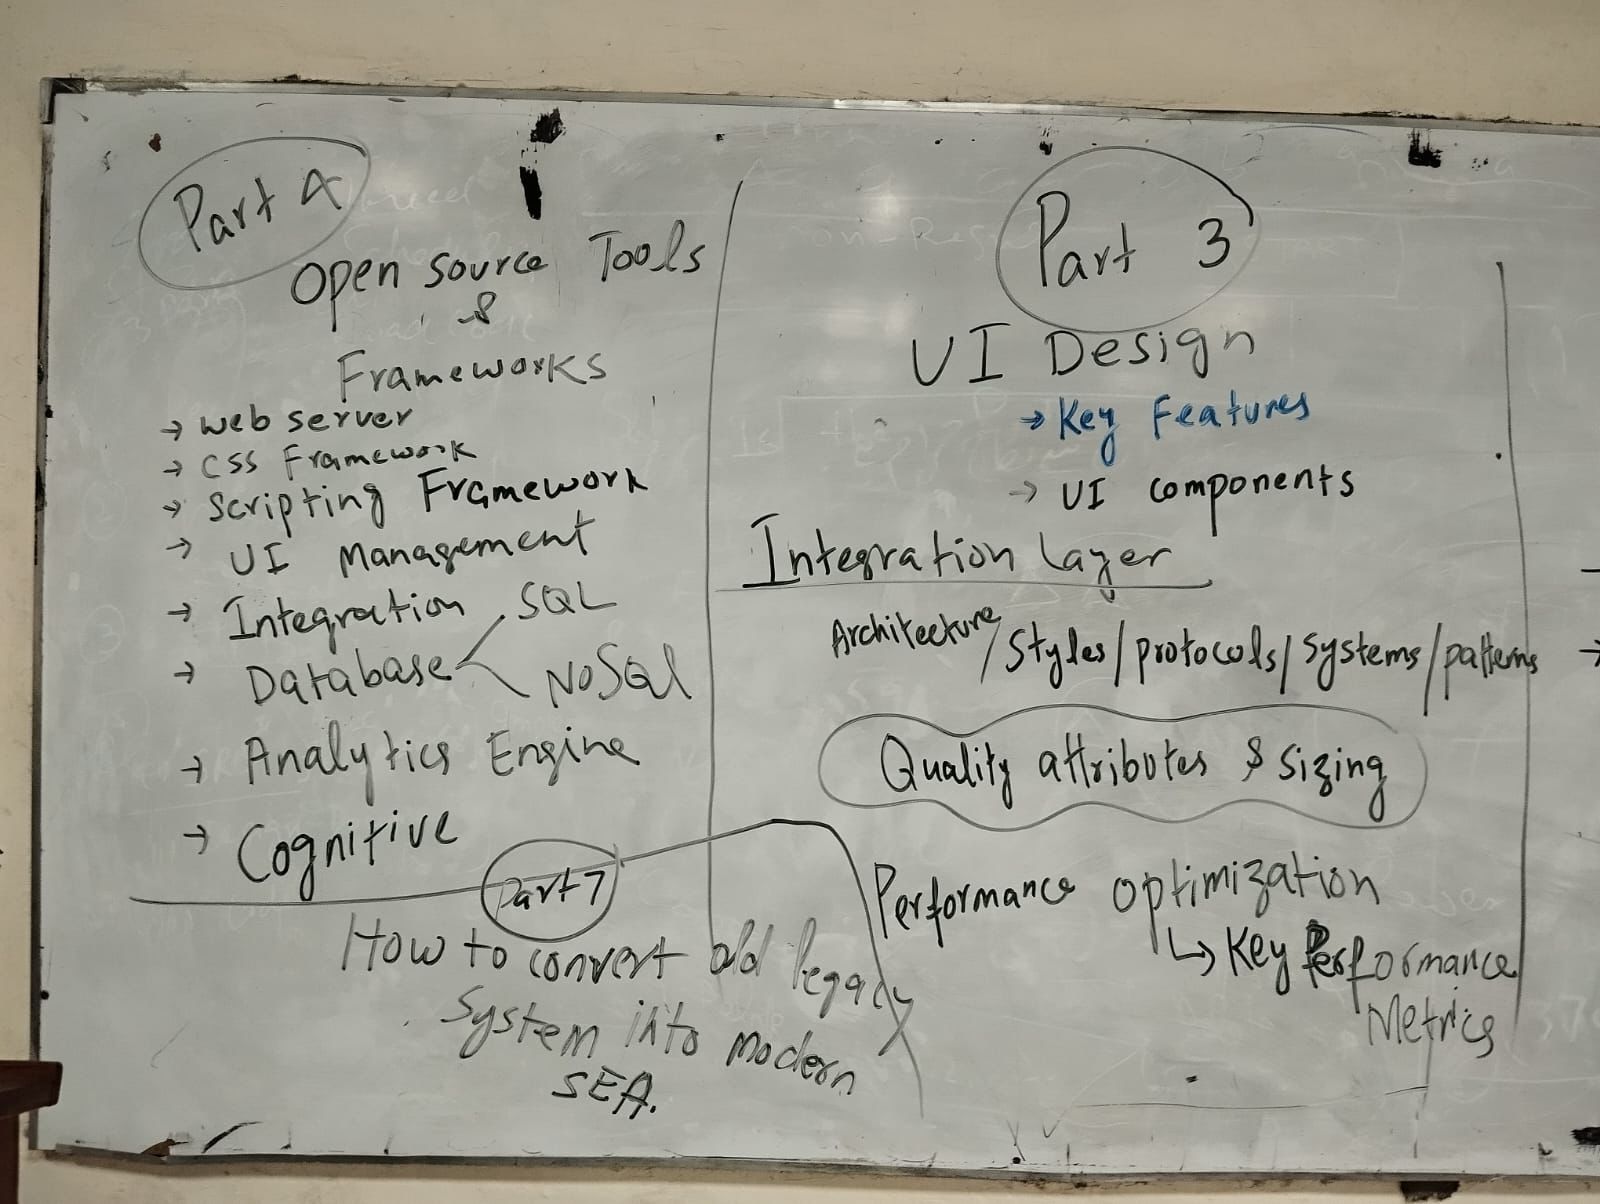 Part 4
Open source Tools
&
Frameworks
→ web server
→ CSS Framework
→ Scripting Framework
→ UI Management
→ Integration
→ Database < SQL
NoSQL
→ Analytics Engine
→ Cognitive
Part 7
How to convert old legacy
system into modern
SEA.
Part 3
UI Design
→ Key Features
→ UI components
Integration Layer
Architecture/Styles/protocols/systems/patterns
Quality attributes & sizing
Performance optimization
↳ Key Performance
Metrics